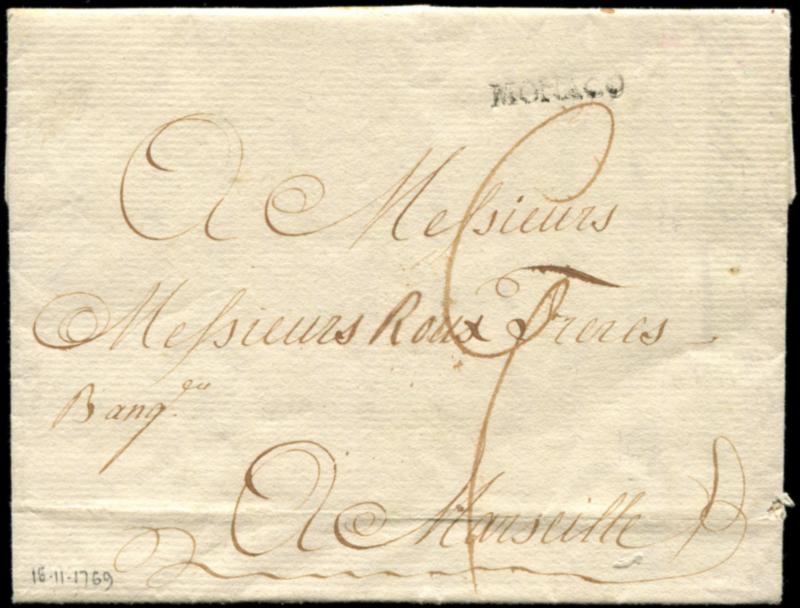 MONACO
A Messieurs
Messieurs Roux Freres
Banq.rs
A Marseille
16-11-1769